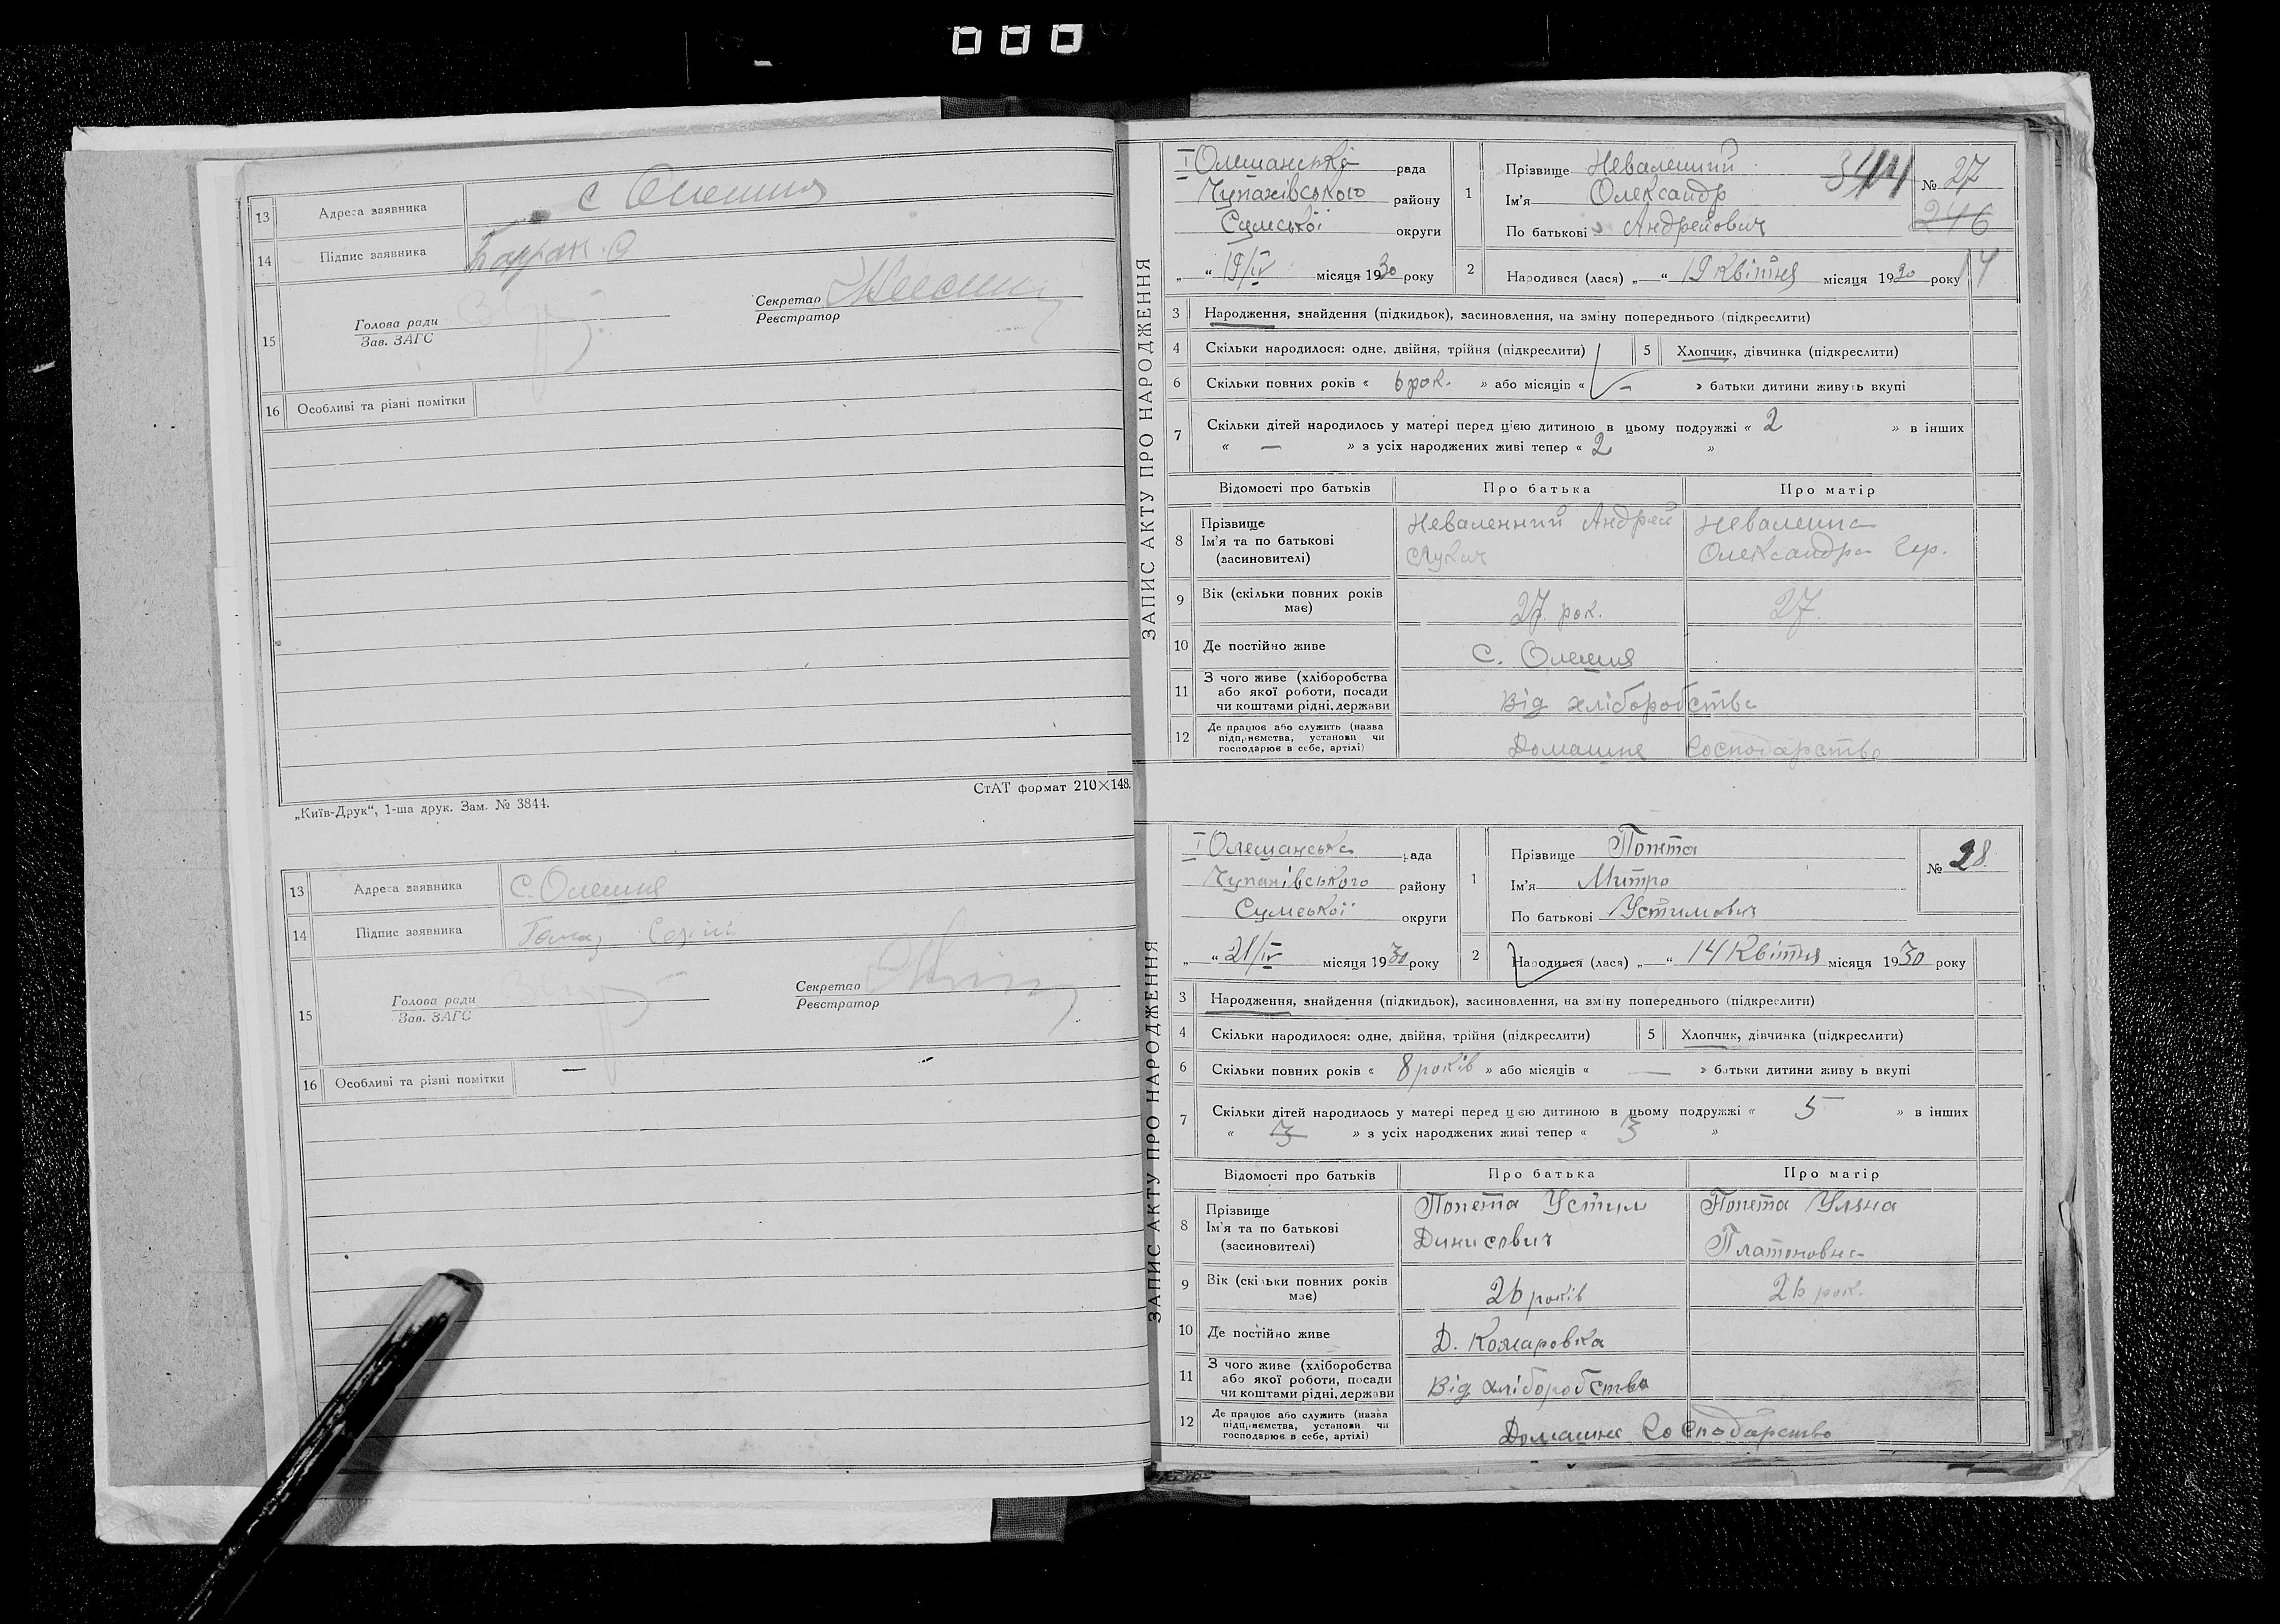 000
13 Адреса заявника с Олешня
14 Підпис заявника
15 Голова ради
Зав. ЗАГС
Секретар
Реєстратор
16 Особливі та різні помітки
СтАТ формат 210×148.
„Київ-Друк“, 1-ша друк. Зам. № 3844.
13 Адреса заявника С. Олешня
14 Підпис заявника
15 Голова ради
Зав. ЗАГС
Секретар
Реєстратор
16 Особливі та різні помітки —
ЗАПИС АКТУ ПРО НАРОДЖЕННЯ
I Олешанська рада
Чупахівського району
Сумської округи
„ “ 19/IV місяця 1930 року
1 Прізвище Невалений
Ім'я Олександр
По батькові Андрейович
344
№ 27
246
14
2 Народився (лася) „ “ 19 Квітня місяця 1930 року
3 Народження, знайдення (підкидьок), засиновлення, на зміну попереднього (підкреслити)
4 Скільки народилося: одне, двійня, трійня (підкреслити) 5 Хлопчик, дівчинка (підкреслити)
6 Скільки повних років « 6 рок. » або місяців « — » батьки дитини живуть вкупі
7 Скільки дітей народилось у матері перед цією дитиною в цьому подружжі « 2 » в інших
« — » з усіх народжених живі тепер « 2 »
Відомості про батьків Про батька Про матір
8 Прізвище
Ім'я та по батькові
(засиновителі)
Неваленний Андрей
Лукич
Невалена
Олександра Гр.
9 Вік (скільки повних років має) 27 рок. 27
10 Де постійно живе С. Олешня
11 З чого живе (хліборобства
або якої роботи, посади
чи коштами рідні, держави
Від хліборобства
12 Де працює або служить (назва
підприємства, установи чи
господарює в себе, артілі)
Домашнє Господарство
ЗАПИС АКТУ ПРО НАРОДЖЕННЯ
I Олешанська рада
Чупахівського району
Сумської округи
„ “ 21/IV місяця 1930 року
1 Прізвище Попета
Ім'я Митро
По батькові Устимович
№ 28
2 Народився (лася) „ “ 14 Квітня місяця 1930 року
3 Народження, знайдення (підкидьок), засиновлення, на зміну попереднього (підкреслити)
4 Скільки народилося: одне, двійня, трійня (підкреслити) 5 Хлопчик, дівчинка (підкреслити)
6 Скільки повних років « 8 років » або місяців « — » батьки дитини живуть вкупі
7 Скільки дітей народилось у матері перед цією дитиною в цьому подружжі « 5 » в інших
« 3 » з усіх народжених живі тепер « 3 »
Відомості про батьків Про батька Про матір
8 Прізвище
Ім'я та по батькові
(засиновителі)
Попета Устим
Динисович
Попета Уляна
Платоновна
9 Вік (скільки повних років має) 26 років 26 рок.
10 Де постійно живе Д. Комаровка
11 З чого живе (хліборобства
або якої роботи, посади
чи коштами рідні, держави
Від хліборобства
12 Де працює або служить (назва
підприємства, установи чи
господарює в себе, артілі)
Домашнє Господарство